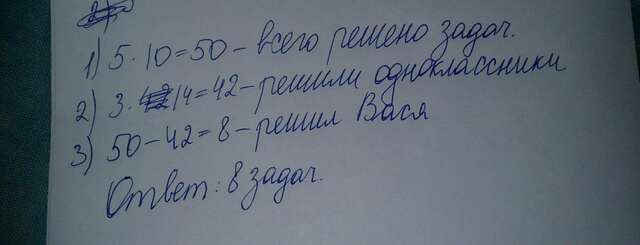 1) 5 · 10 = 50 – всего решено задач.
2) 3 · 14 = 42 – решили одноклассники
3) 50 – 42 = 8 – решил Вася
Ответ: 8 задач.